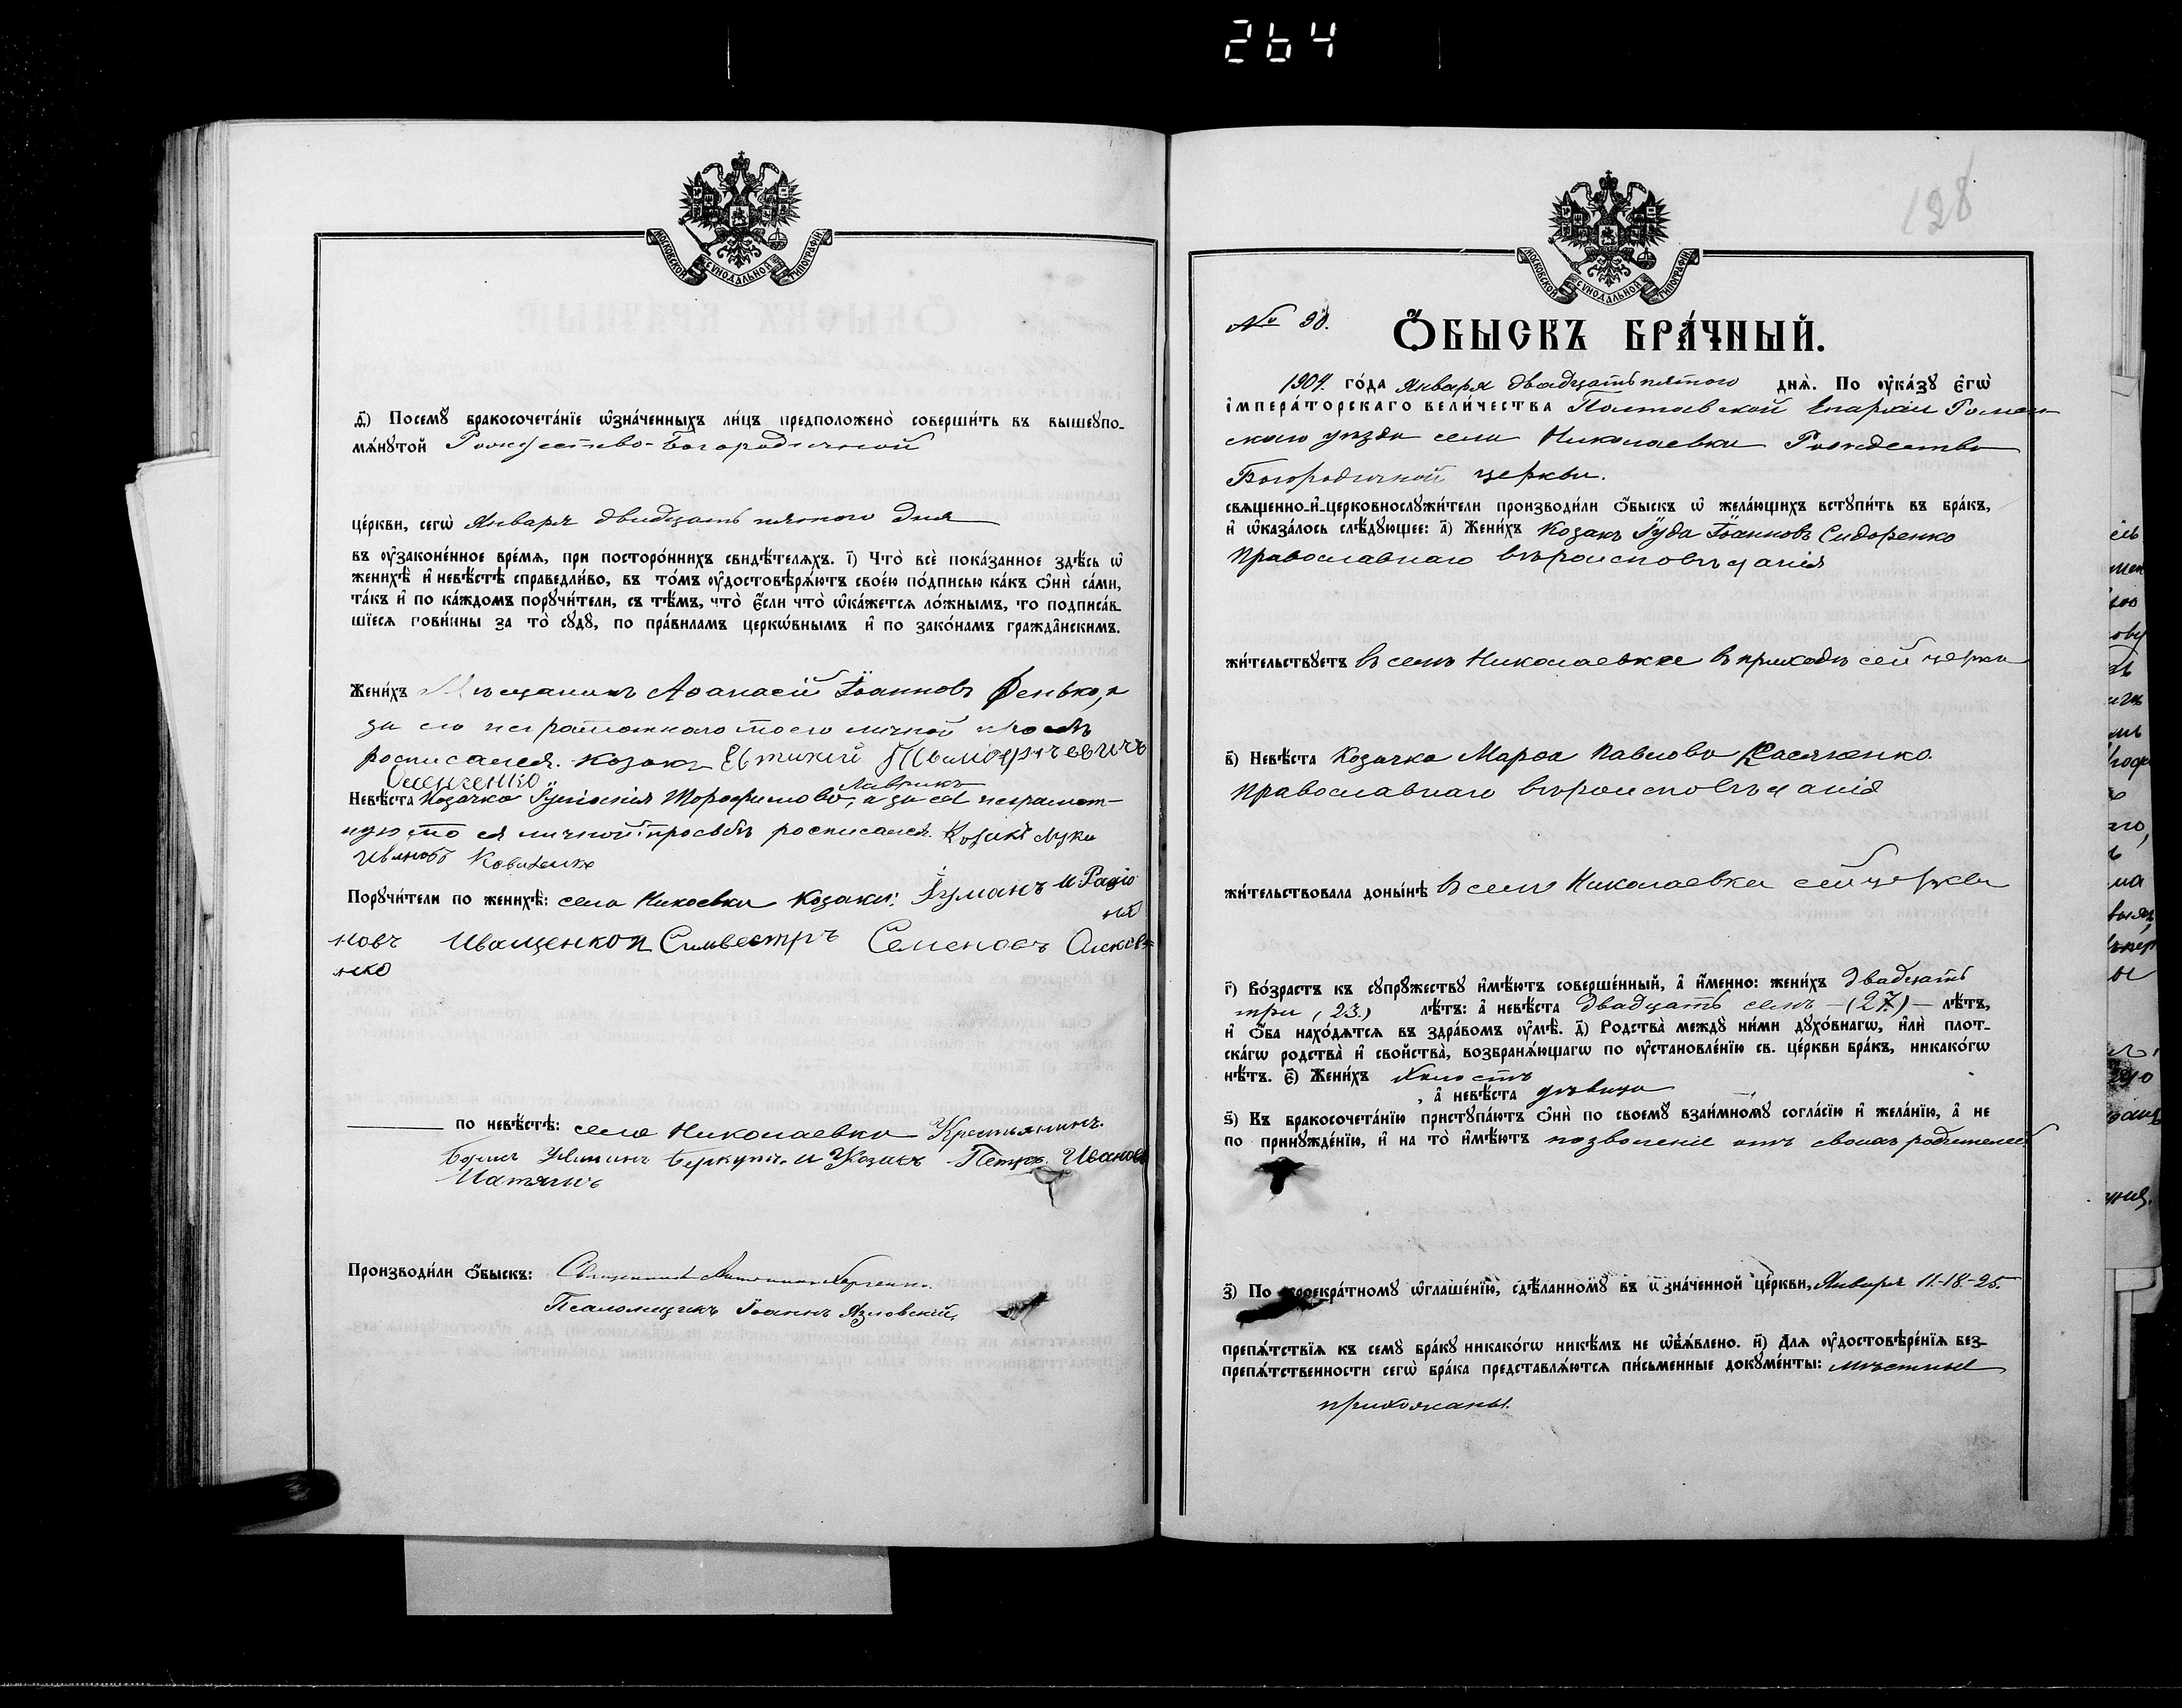 264
МОСКОВСКОЙ СѴНОДАЛЬНОЙ ТИПОГРАФІИ
д҃) Посемꙋ̀ бракосочета́нїе ѡ҆зна́ченныхъ ли́цъ предположено̀ соверши́ть въ вышеꙋпо-
мѧ́нꙋтой Рождество-Богородичной
це́ркви, сегѡ̀ Января двадцать пятого дня
въ ᲂу҆законе́нное вре́мѧ, при посторо́ннихъ свидѣ́телѧхъ. і҃) Что̀ всѐ пока́занное здѣ́сь ѡ҆
женихѣ̀ и҆ невѣ́стѣ справедли́во, въ то́мъ ᲂу҆достовѣрѧ́ютъ свое́ю по́дписью ка́къ ѻ҆нѝ са́ми,
та́къ и҆ по ка́ждомъ порꙋчи́тели, съ тѣ́мъ, что̀ є҆́сли что̀ ѡ҆ка́жетсѧ ло́жнымъ, то подписа́в-
шїесѧ пови́нны за то̀ сꙋдꙋ̀, по пра́виламъ церкѡ́внымъ и҆ по зако́намъ гражда̑нскимъ.
Жени́хъ Мѣщанинъ Аѳанасій Іоанновъ Фенько, а
за его неграмотного по его личной просьбѣ
росписался. Козакъ Евтихій
Оленченко
Лаврикъ
Невѣ́ста Козачка Трофимова, а за ея неграмот-
ную по ея личной просьбѣ росписался. Козакъ Лука
Ивановъ
Порꙋчи́тели по женихѣ̀: села Никоевки Козаки: Гуманъ И Радіо
новъ Иващенко и Сильвестръ Семеновъ Алексѣ-
нко
по невѣ́стѣ: села Николаевки Крестьянинъ.
Беркутъ. и Козакъ Петръ Ивановъ
Матяшъ
Производи́ли ѻ҆́быскъ: Священникъ
Псаломщикъ Іоаннъ Язловскій.
128
МОСКОВСКОЙ СѴНОДАЛЬНОЙ ТИПОГРАФІИ
№ 90.
Ѻ҆́БЫСКЪ БРА́ЧНЫЙ.
1904. го́да Января двадцать пятого днѧ̀. По ᲂу҆ка́зꙋ є҆гѡ̀
і҆мпера́торскаго вели́чества Полтавской Епархіи Ромен-
скаго уѣзда села Николаевки Рождество
Богородичной церкви.
свѧщенно-и҆-церковнослꙋжи́тели производи́ли ѻ҆́быскъ ѡ҆ жела́ющихъ встꙋпи́ть въ бра́къ,
и҆ ѡ҆каза́лось слѣ́дꙋющее: а҃) Жени́хъ Козакъ Іуда Іоанновъ Сидоренко
православнаго вѣроисповѣданія
жи́тельствꙋетъ въ селѣ Николаевкѣ въ приходѣ сей церкви
в҃) Невѣ́ста Козачка Марѳа Павлова Касяненко.
православнаго вѣроисповѣданія
жи́тельствовала доны́нѣ въ селѣ Николаевки сей церкви
г҃) Во́зрастъ къ сꙋпрꙋ́жествꙋ и҆мѣ́ютъ соверше́нный, а҆ и҆́менно: жени́хъ двадцать
три (23.) лѣ́тъ: а҆ невѣ́ста двадцать семь -(27.)- лѣ́тъ,
и҆ ѻ҆́ба нахо́дѧтсѧ въ здра́вомъ ᲂу҆мѣ̀. д҃) Родства̀ междꙋ̀ ни́ми дꙋхо́внагѡ, и҆лѝ плот-
ска́гѡ родства̀ и҆ сво́йства, возбранѧ́ющагѡ по ᲂу҆становле́нїю св. це́ркви бра́къ, никако́гѡ
нѣ́тъ. є҃) Жени́хъ холостъ
, а҆ невѣ́ста дѣвица
ѕ҃) Къ бракосочета́нїю пристꙋпа́ютъ ѻ҆нѝ по своемꙋ̀ взаи́мномꙋ согла́сїю и҆ жела́нїю, а҆ не
по принꙋжде́нїю, и҆ на то̀ и҆мѣ́ютъ позволеніе отъ своихъ родителей
з҃) По троекра́тномꙋ ѡ҆глаше́нїю, сдѣ́ланномꙋ въ ѡ҆зна́ченной це́ркви, Января 11-18-25.
препѧ́тствїѧ къ семꙋ̀ бра́кꙋ никако́гѡ никѣ́мъ не ѡ҆б̾ѧ́влено. и҃) Для ᲂу҆достовѣре́нїѧ без-
препѧ́тственности сегѡ̀ бра́ка представлѧ́ютсѧ пи́сьменные докꙋме́нты: мѣстные
прихожаны.